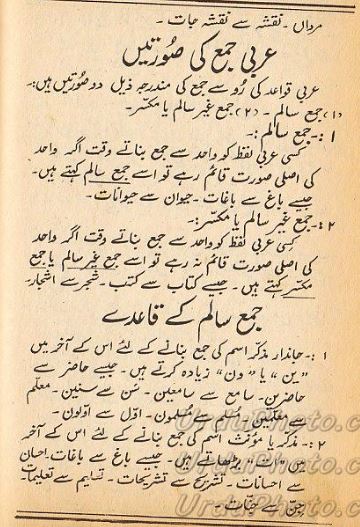 مرداں ۔ نقشہ سے نقشہ جات ۔
عربی جمع کی صُورتیں
عربی قواعد کی رُو سے جمع کی مندرجہ ذیل دو صورتیں ہیں:۔
(۱) جمع سالم ۔ (۲) جمع غیر سالم یا مکسّر۔
۱ :۔ جمع سالم :۔
کسی عربی لفظ کو واحد سے جمع بناتے وقت اگر واحد
کی اصلی صورت قائم رہے تو اسے جمع سالم کہتے ہیں۔
جیسے باغ سے باغات۔ حیوان سے حیوانات۔
۲ :۔ جمع غیر سالم یا مکسّر:۔
کسی عربی لفظ کو واحد سے جمع بناتے وقت اگر واحد
کی اصلی صورت قائم نہ رہے تو اسے جمع غیر سالم یا جمع
مکسّر کہتے ہیں۔ جیسے کتاب سے کتب۔ شجر سے اشجار۔
جمع سالم کے قاعدے
۱ :۔ جاندار مذکّر اسم کی جمع بنانے کے لئے اس کے آخر میں
"ین" یا "ون" زیادہ کرتے ہیں۔ جیسے حاضر سے
حاضرین۔ سامع سے سامعین۔ سَن سے سنین۔ معلّم
سے معلّمین۔ مُسلم سے مُسلمون۔ اوّل سے اوّلون۔
۲ :۔ مذکّر یا مؤنث اسم کی جمع بنانے کے لئے اس کے آخر
میں "ات" بڑھاتے ہیں۔ جیسے باغ سے باغات۔ احسان
سے احسانات۔ تشریح سے تشریحات۔ تسلیم سے تعلیمات۔
جن سے جنّات۔
UrduPhoto.com
UrduPhoto.com
UrduPhoto.com